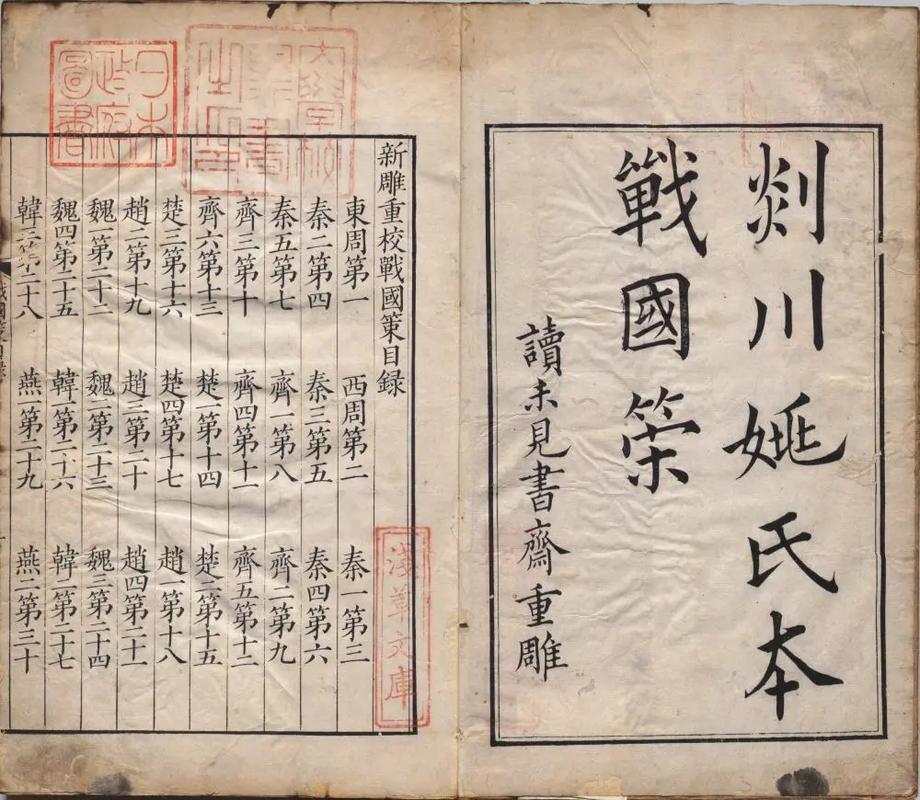 剡川姚氏本
戰國策
讀未見書齋重雕
新雕重校戰國策目録
東周第一 西周第二 秦一第三
秦二第四 秦三第五 秦四第六
秦五第七 齊一第八 齊二第九
齊三第十 齊四第十一 齊五第十二
齊六第十三 楚一第十四 楚二第十五
楚三第十六 楚四第十七 趙一第十八
趙二第十九 趙三第二十 趙四第二十一
魏一第二十二 魏二第二十三 魏三第二十四
魏四第二十五 韓一第二十六 韓二第二十七
韓三第二十八 燕一第二十九 燕二第三十
大學校圖書之印
日本政府圖書
淺草文庫